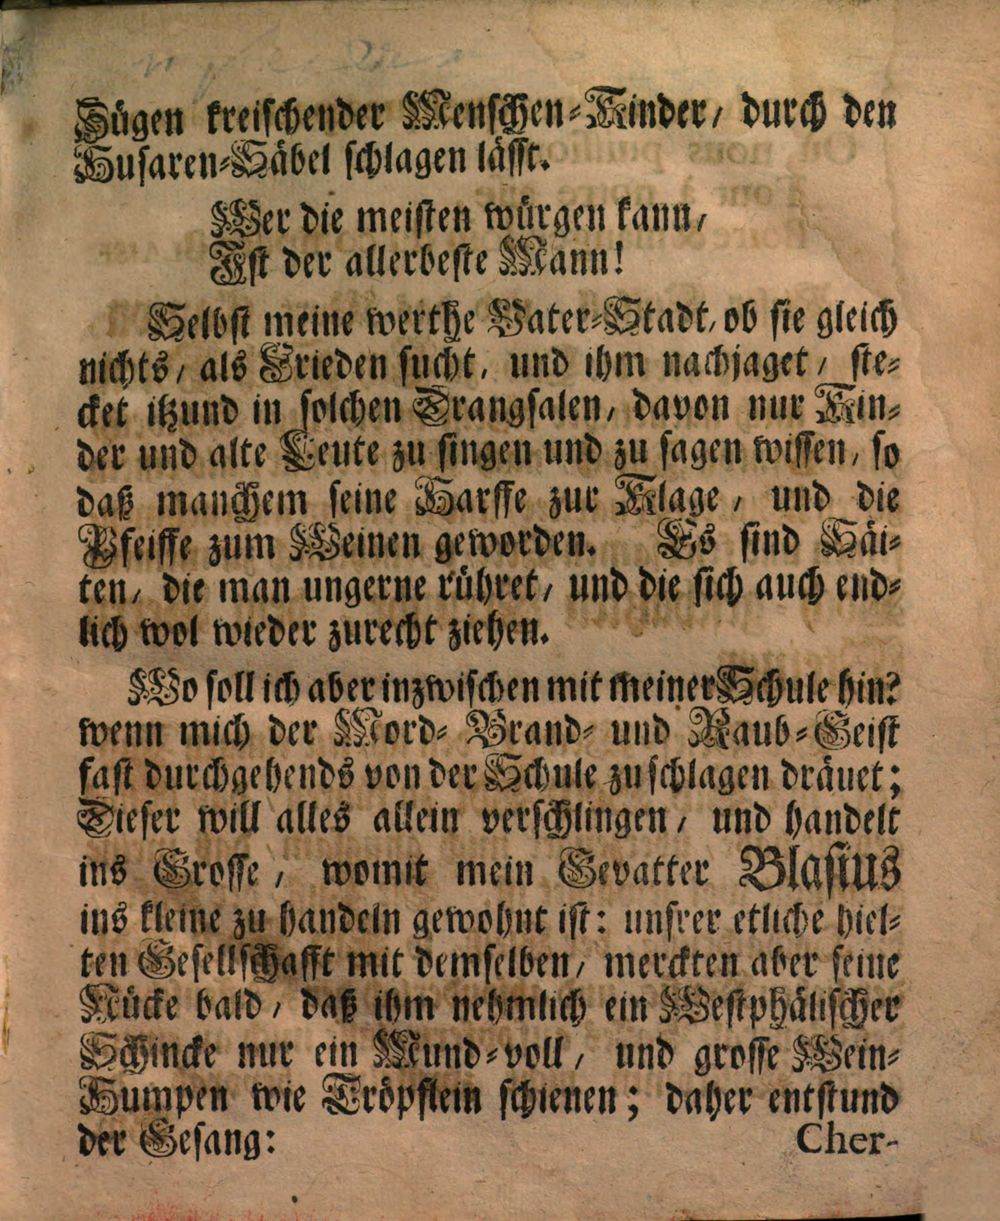 Zügen kreischender Menschen-Kinder, durch den
Husaren-Säbel schlagen läfft.
Wer die meisten würgen kann,
Ist der allerbeste Mann!
Selbst meine werthe Vater-Stadt, ob sie gleich
nichts, als Frieden sucht, und ihm nachjaget, ste-
cket itzund in solchen Drangsalen, davon nur Kin-
der und alte Leute zu singen und zu sagen wissen, so
daß manchem seine Harffe zur Klage, und die
Pfeiffe zum Weinen geworden. Es sind Säi-
ten, die man ungerne rühret, und die sich auch end-
lich wol wieder zurecht ziehen.
Wo soll ich aber inzwischen mit meiner Schule hin?
wenn mich der Mord- Brand- und Raub-Geist
fast durchgehends von der Schule zu schlagen dräuet;
Dieser will alles allein verschlingen, und handelt
ins Grosse, womit mein Gevatter Blasius
ins kleine zu handeln gewohnt ist: unsrer etliche hiel-
ten Gesellschafft mit demselben, merckten aber seine
Nücke bald, daß ihm nehmlich ein Westphälischer
Schincke nur ein Mund-voll, und grosse Wein-
Humpen wie Tröpflein schienen; daher entstund
der Gesang:
Cher-